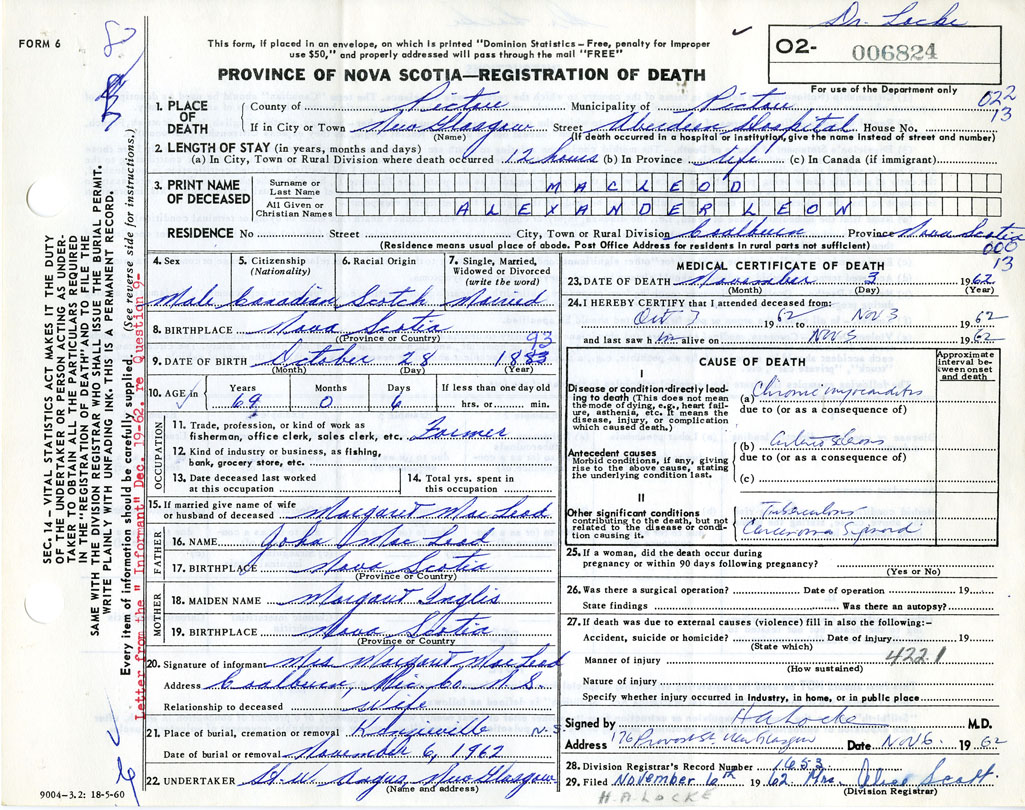 Dr. Locke
FORM 6
This form, if placed in an envelope, on which is printed "Dominion Statistics – Free, penalty for improper
use $50," and properly addressed will pass through the mail "FREE"
O2- 006824
PROVINCE OF NOVA SCOTIA—REGISTRATION OF DEATH
For use of the Department only
022
13
1. PLACE OF DEATH
County of Pictou Municipality of Pictou
If in City or Town New Glasgow Street Aberdeen Hospital House No.
(Name) (If death occurred in a hospital or institution, give the name instead of street and number)
2. LENGTH OF STAY (in years, months and days)
(a) In City, Town or Rural Division where death occurred 12 hours (b) In Province life (c) In Canada (if immigrant)
3. PRINT NAME OF DECEASED
Surname or Last Name MACLEOD
All Given or Christian Names ALEXANDER LEON
RESIDENCE No Street City, Town or Rural Division Coalburn Province Nova Scotia
(Residence means usual place of abode. Post Office Address for residents in rural parts not sufficient)
000
13
4. Sex 5. Citizenship (Nationality) 6. Racial Origin 7. Single, Married, Widowed or Divorced (write the word)
Male Canadian Scotch Married
8. BIRTHPLACE Nova Scotia
(Province or Country)
93
9. DATE OF BIRTH October 28 1883
(Month) (Day) (Year)
10. AGE in Years Months Days If less than one day old
69 0 6 hrs. or min.
OCCUPATION
11. Trade, profession, or kind of work as
fisherman, office clerk, sales clerk, etc. Farmer
12. Kind of industry or business, as fishing,
bank, grocery store, etc.
13. Date deceased last worked
at this occupation
14. Total yrs. spent in
this occupation
15. If married give name of wife
or husband of deceased Margaret MacLeod
FATHER
16. NAME John MacLeod
17. BIRTHPLACE Nova Scotia
(Province or Country)
MOTHER
18. MAIDEN NAME Margaret Inglis
19. BIRTHPLACE Nova Scotia
(Province or Country)
20. Signature of informant Mrs Margaret MacLeod
Address Coalburn Pic. Co. N.S.
Relationship to deceased Wife
21. Place of burial, cremation or removal N.S.
Date of burial or removal November 6, 1962
22. UNDERTAKER Angus, New Glasgow
(Name and address)
9004-3.2: 18-5-60
MEDICAL CERTIFICATE OF DEATH
23. DATE OF DEATH November 3 1962
(Month) (Day) (Year)
24. I HEREBY CERTIFY that I attended deceased from:
Oct 7 1962 to Nov 3 1962
and last saw him alive on Nov 3 1962
CAUSE OF DEATH
Approximate interval between onset and death
I
Disease or condition directly leading to death (This does not mean the mode of dying, e.g., heart failure, asthenia, etc. It means the disease, injury, or complication which caused death.)
(a) Chronic myocarditis
due to (or as a consequence of)
Antecedent causes
Morbid conditions, if any, giving rise to the above cause, stating the underlying condition last.
(b)
due to (or as a consequence of)
(c)
II
Other significant conditions
contributing to the death, but not related to the disease or condition causing it.
Tuberculosis
Carcinoma Sigmoid
25. If a woman, did the death occur during
pregnancy or within 90 days following pregnancy?
(Yes or No)
26. Was there a surgical operation? Date of operation 19
State findings Was there an autopsy?
27. If death was due to external causes (violence) fill in also the following:–
Accident, suicide or homicide? Date of injury 19
(State which)
4221
Manner of injury
(How sustained)
Nature of injury
Specify whether injury occurred in industry, in home, or in public place
Signed by H A Locke M.D.
Address 176 Provost St. New Glasgow Date Nov 6. 1962
28. Division Registrar's Record Number 1653
29. Filed November 6th 1962 Mrs. Alice Scott
(Division Registrar)
H.A. LOCKE
SEC. 14 – VITAL STATISTICS ACT MAKES IT THE DUTY
OF THE UNDERTAKER OR PERSON ACTING AS UNDER-
TAKER TO OBTAIN ALL THE PARTICULARS REQUIRED
IN THE "REGISTRATION OF DEATH" AND TO FILE THE
SAME WITH THE DIVISION REGISTRAR WHO SHALL ISSUE THE BURIAL PERMIT.
WRITE PLAINLY WITH UNFADING INK. THIS IS A PERMANENT RECORD.
Every item of information should be carefully supplied. (See reverse side for instructions.)
Letter from the "Informant" Dec. 19-62, re Question 9-